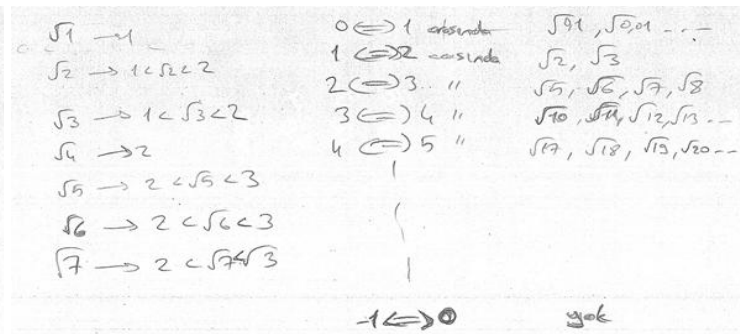 √1 → 1
√2 → 1<√2<2
√3 → 1<√3<2
√4 → 2
√5 → 2<√5<3
√6 → 2<√6<3
√7 → 2<√7<√3
0 ⟺ 1 arasında √0,1, √0,01 ...
1 ⟺ 2 arasında √2, √3
2 ⟺ 3 " √5, √6, √7, √8
3 ⟺ 4 " √10, √11, √12, √13 ..
4 ⟺ 5 " √17, √18, √19, √20 ..
-1 ⟺ 0 yok